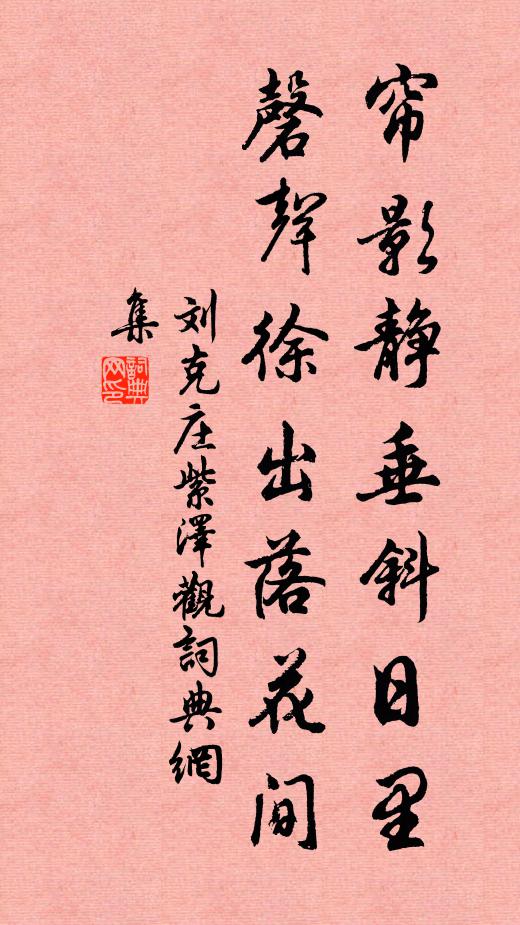 帘影静垂斜日里
磬聲徐出落花间
刘克庄紫澤觀詞典網
集
詞典网印